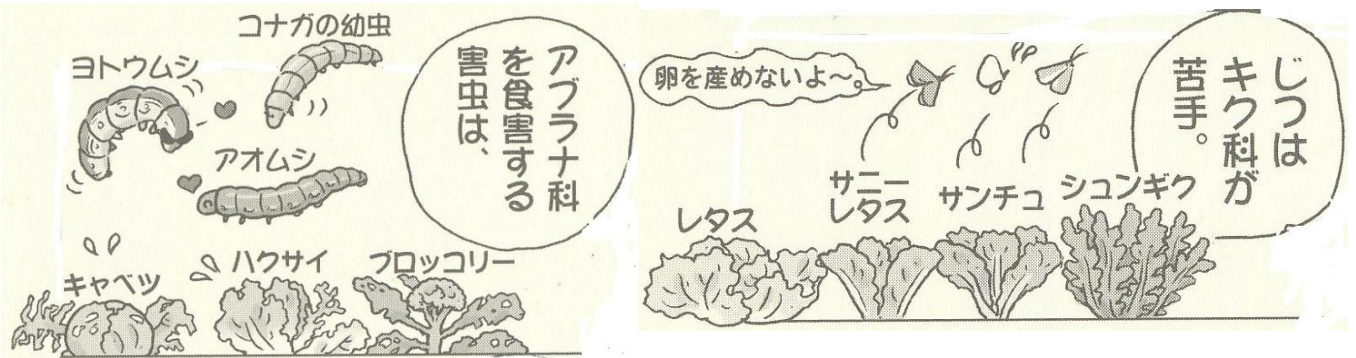 コナガの幼虫
ヨトウムシ
アオムシ
アブラナ科
を食害する
害虫は、
キャベツ
ハクサイ
ブロッコリー
じつは
キク科が
苦手。
卵を産めないよ〜。
レタス
サニー
レタス
サンチュ
シュンギク